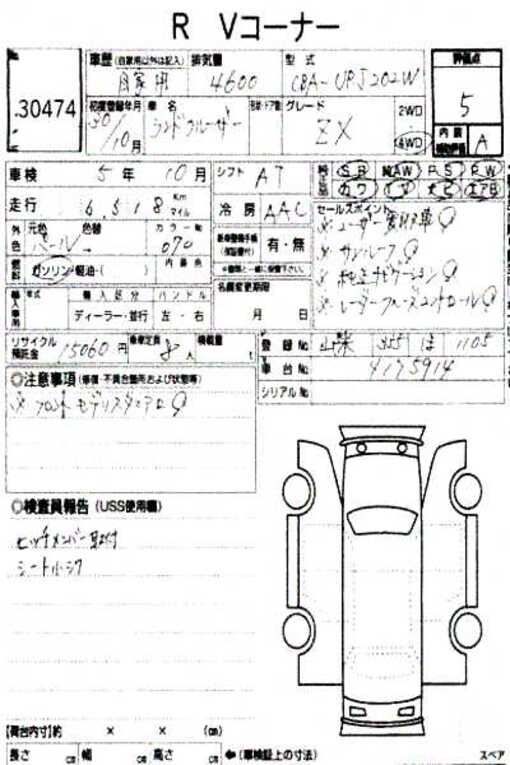 R Vコーナー
30474
車歴 (自家用以外は記入) 自家用
排気量 4600
型式 CBA-URJ202W
評価点 5
初度登録年月 30/10月
車名 ランドクルーザー
グレード ZX
2WD
4WD
内装 A
車検 5年 10月
シフト AT
SR AW PS PW
カワ TV ナビ エアB
走行 6,518 Km マイル
冷房 AAC
セールスポイント
※ユーザー買取車
※サンルーフ
※純正ナビゲーション
※レーダークルーズコントロール
外色 元色 パール 色替
カラーNo 070
有・無
燃料 ガソリン・軽油・( )
内装色
名義変更期限
月 日
輸入車 年式 輸入区分 ハンドル
ディーラー・並行 左・右
リサイクル預託金 15060円
乗車定員 8人
積載量 t
登録No 355 ほ 1105
車台No 4175914
シリアルNo
◎注意事項 (修復・不具合箇所および状態等)
※フロントモデリスタエアロ
◎検査員報告 (USS使用欄)
ヒッチメンバー取付
シート小シワ
【荷台内寸】約 × × (cm)
長さ cm 幅 cm 高さ cm ←(車検証上の寸法)
スペア